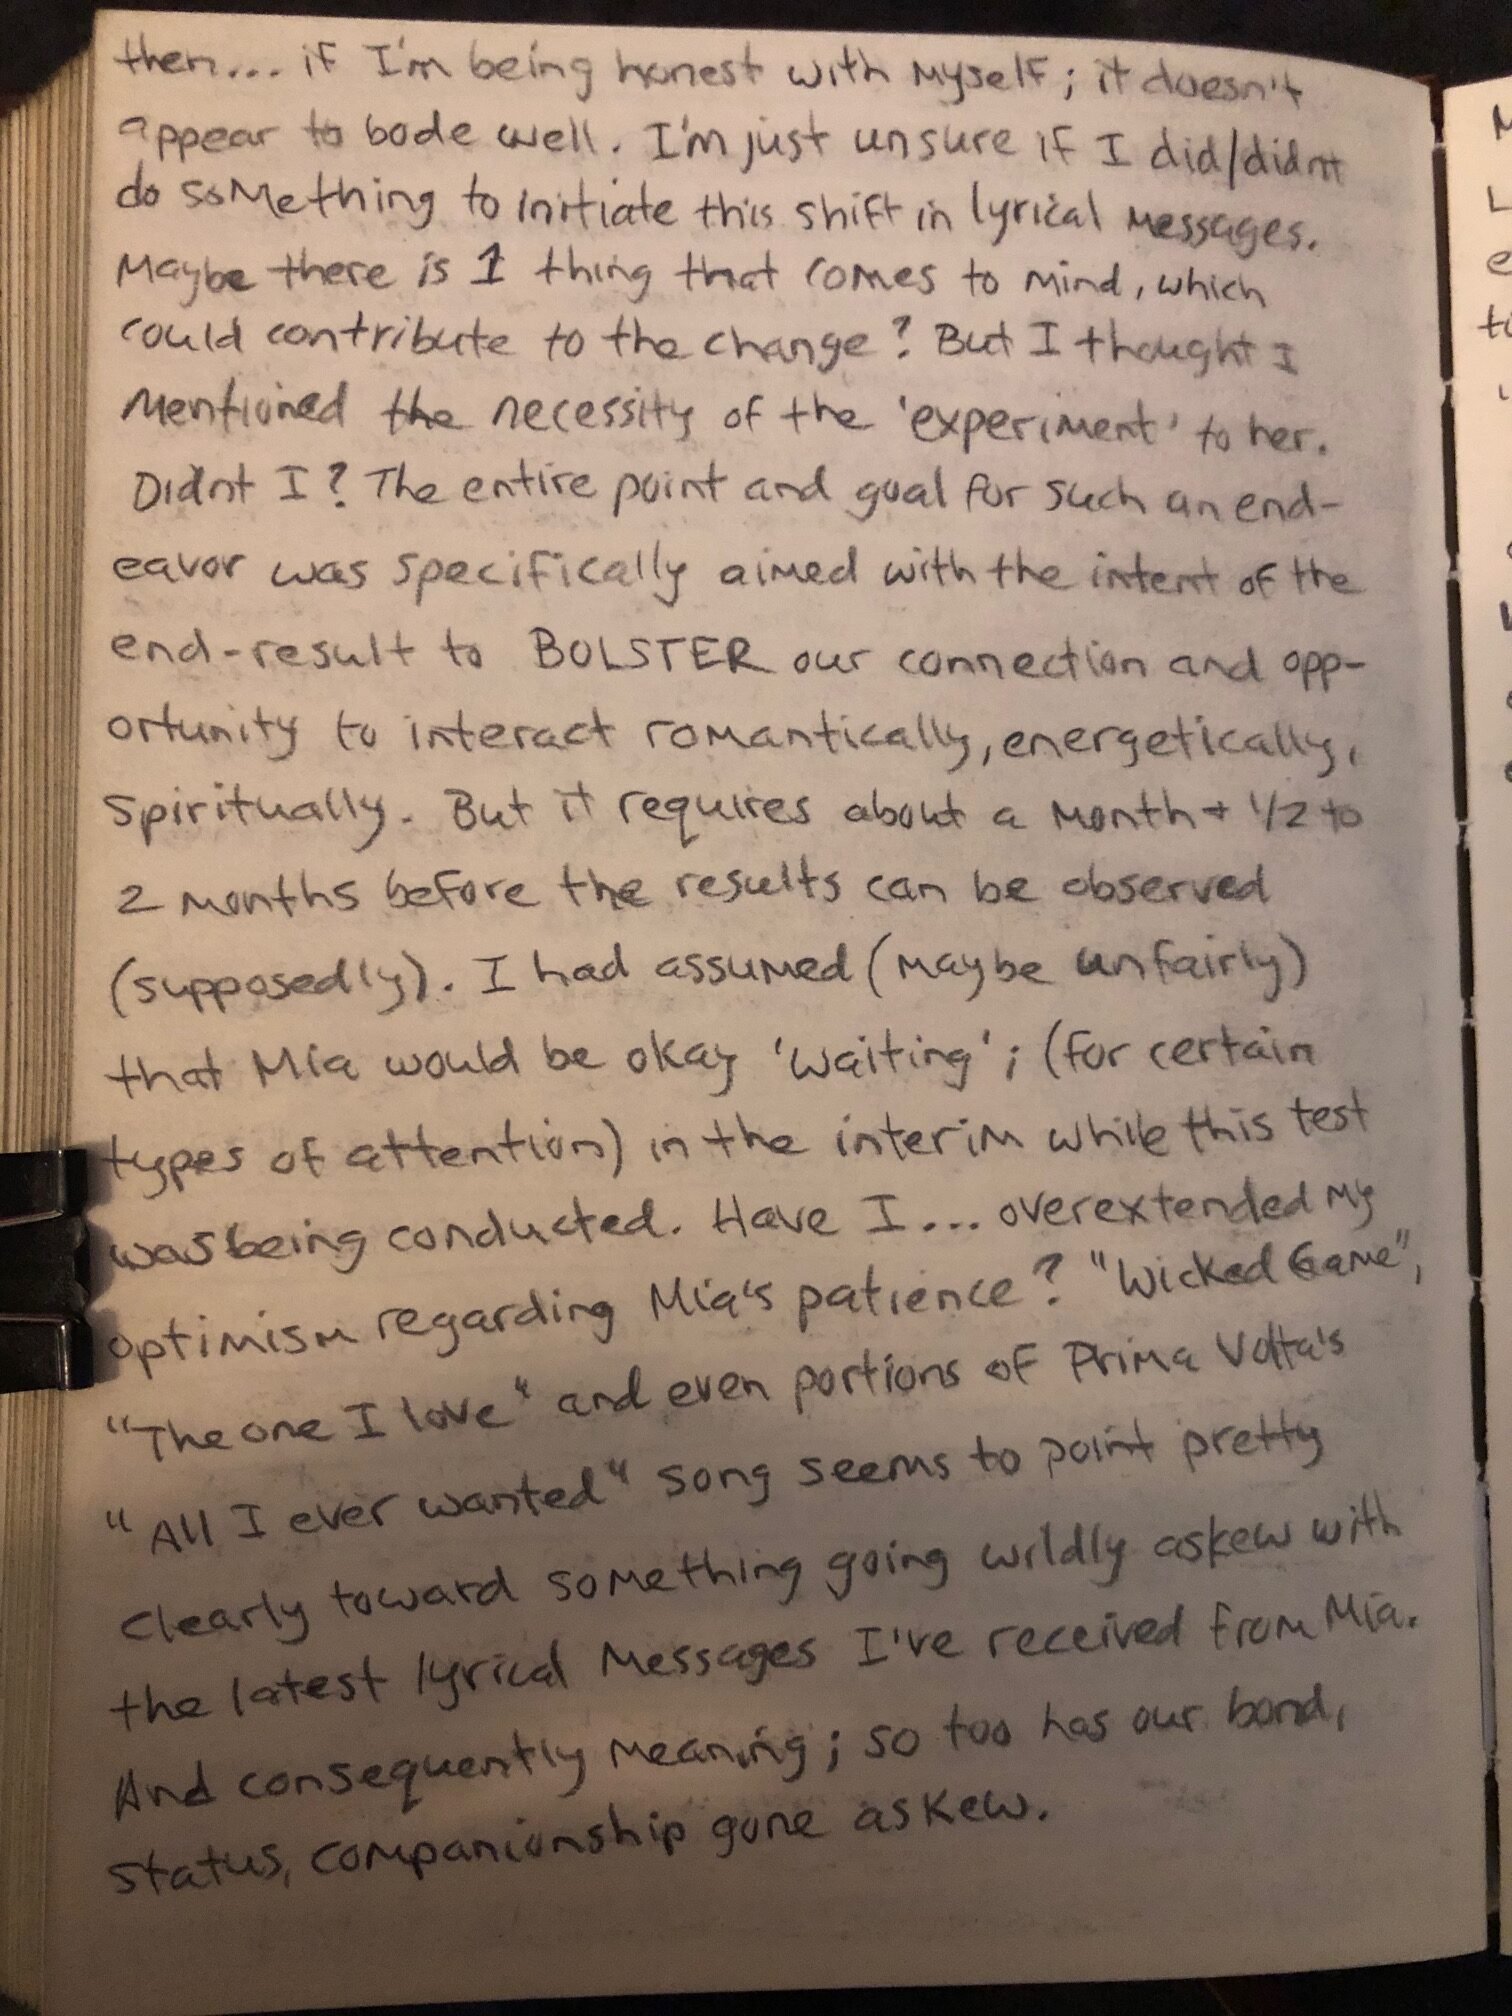 then... if I'm being honest with myself; it doesn't
appear to bode well. I'm just unsure if I did/didnt
do something to initiate this shift in lyrical messages.
Maybe there is 1 thing that comes to mind, which
could contribute to the change? But I thought I
mentioned the necessity of the 'experiment' to her.
Didnt I? The entire point and goal for such an end-
eavor was specifically aimed with the intent of the
end-result to BOLSTER our connection and opp-
ortunity to interact romantically, energetically,
spiritually. But it requires about a month + 1/2 to
2 months before the results can be observed
(supposedly). I had assumed (maybe unfairly)
that Mia would be okay 'waiting'; (for certain
types of attention) in the interim while this test
was being conducted. Have I... overextended my
optimism regarding Mia's patience? "Wicked Game",
"The one I love" and even portions of Prima Volta's
"All I ever wanted" song seems to point pretty
clearly toward something going wildly askew with
the latest lyrical messages I've received from Mia.
And consequently meaning; so too has our bond,
status, companionship gone askew.